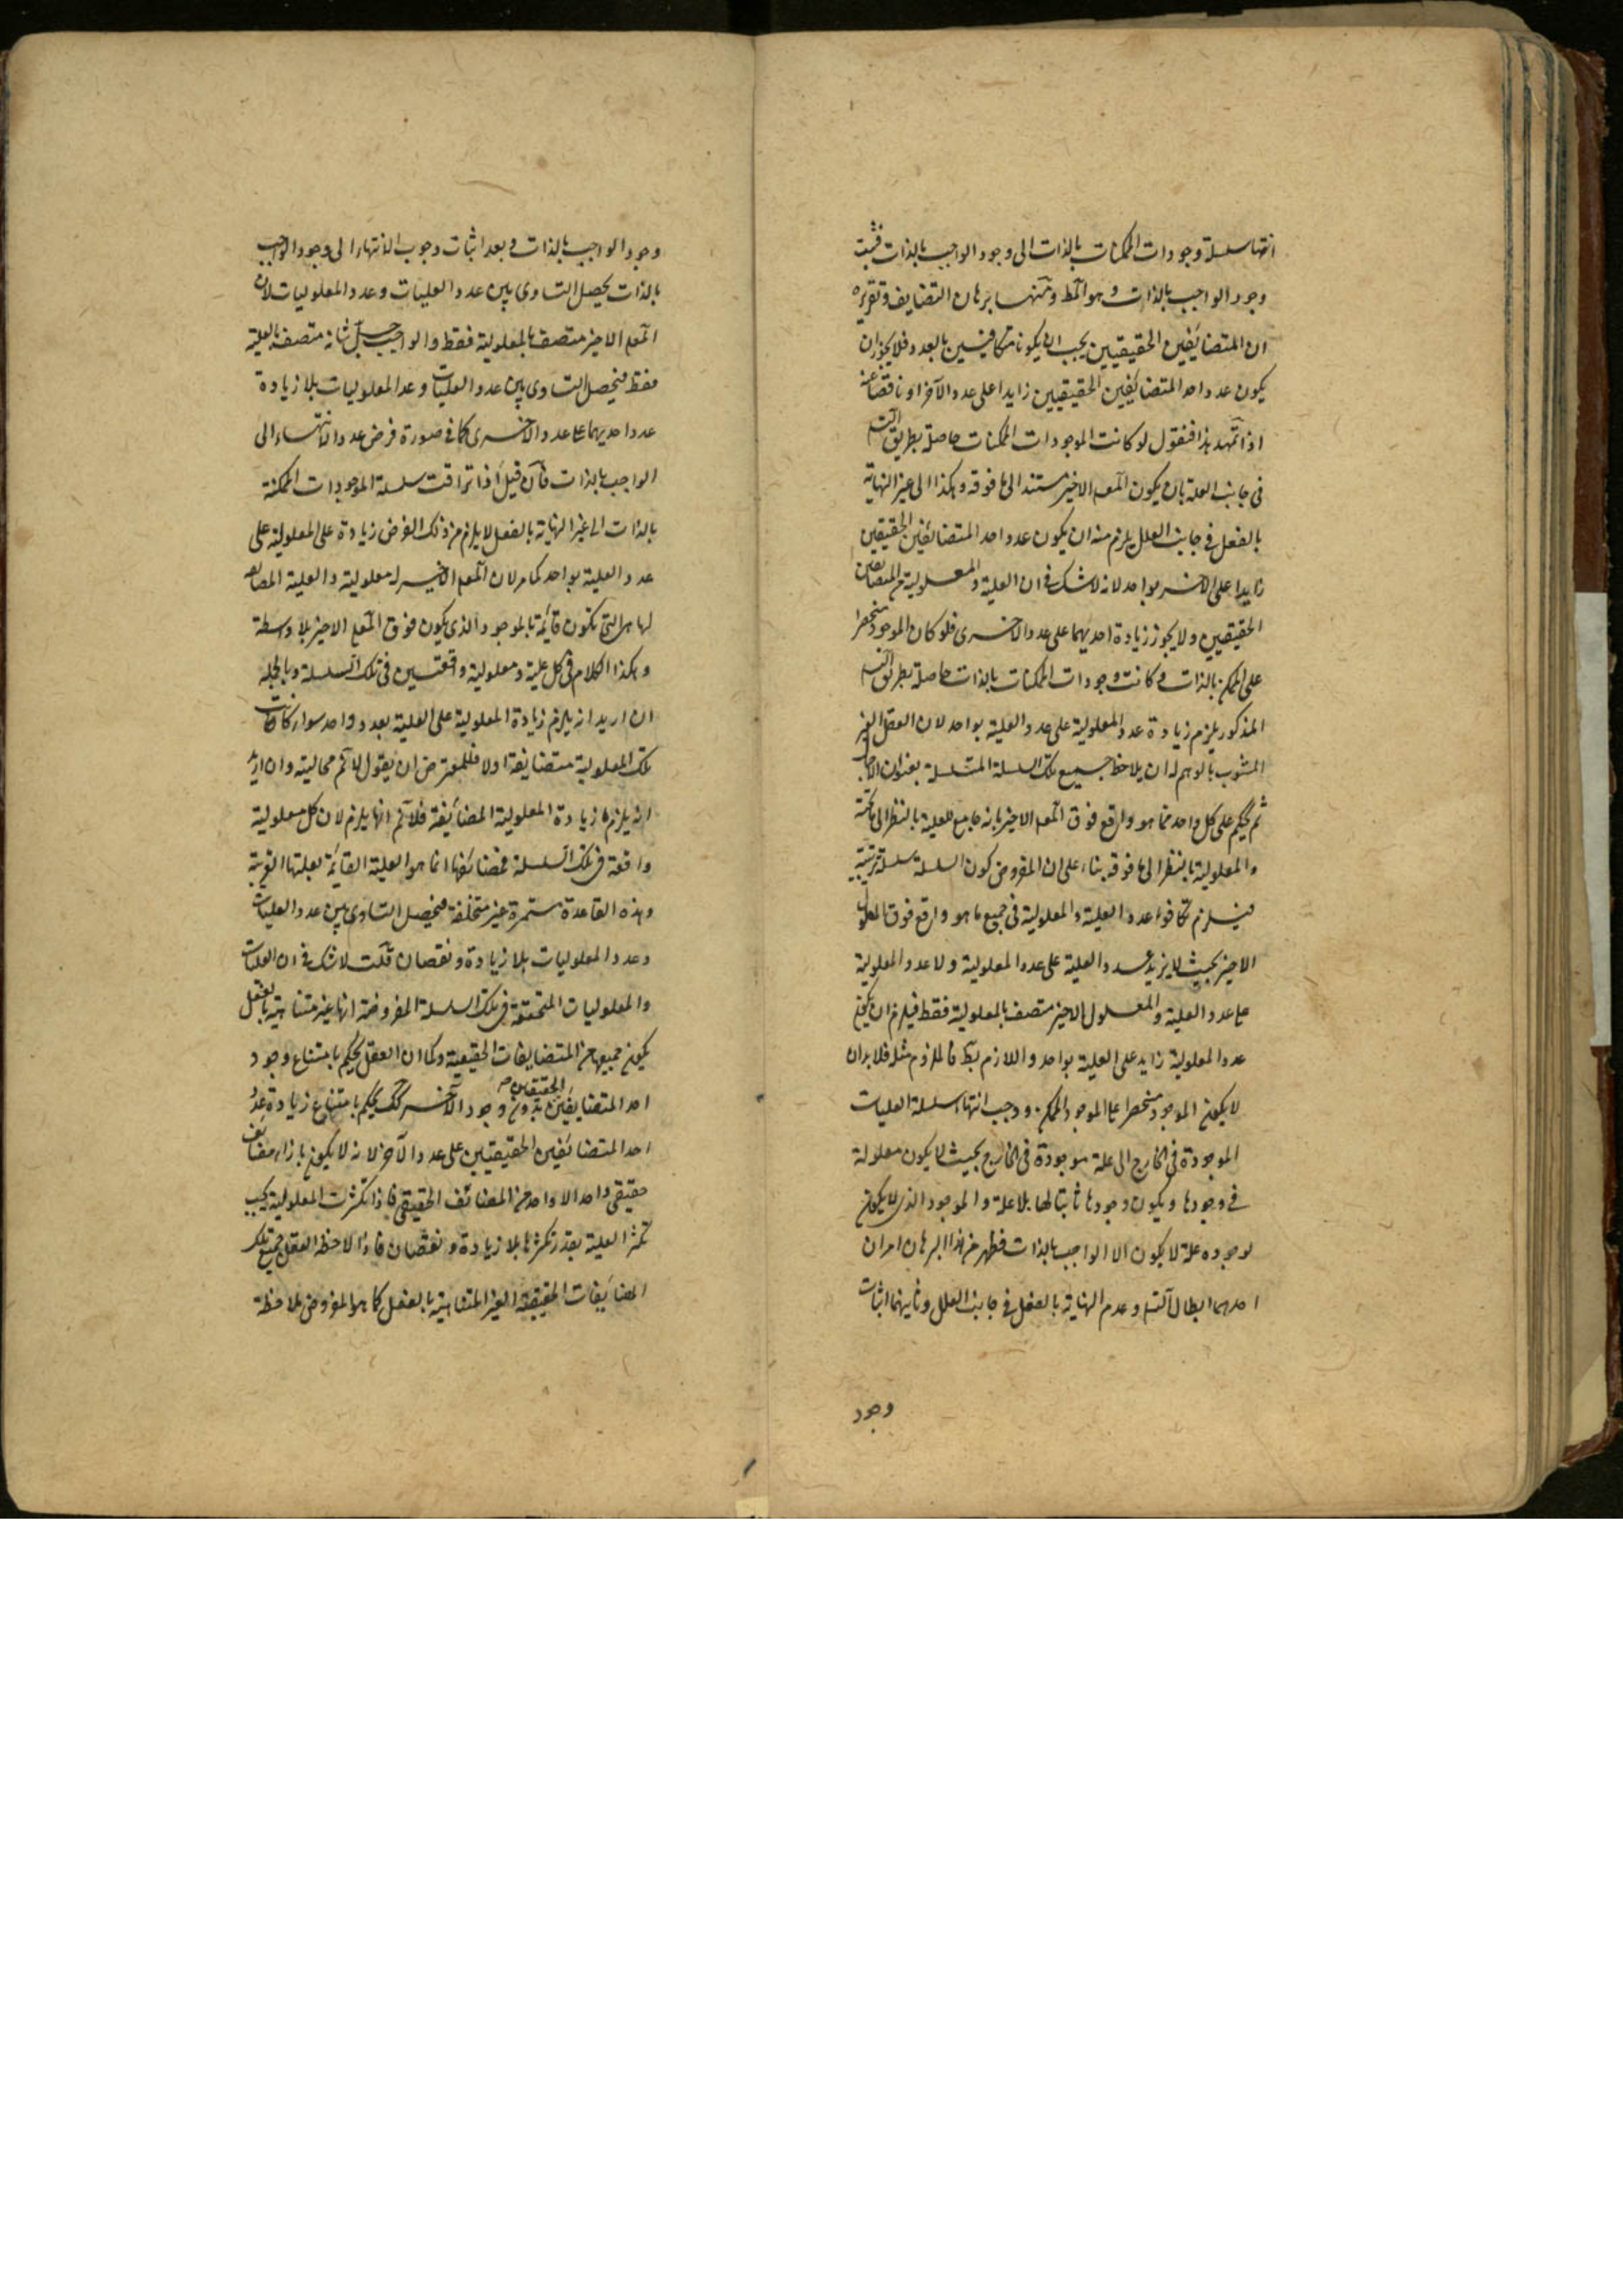 انتها سلسلة وجودات الممكنات بالذات الى وجود الواجب بالذات فثبت
وجود الواجب بالذات وهو المط ومنها برهان التضايف وتقريره
ان المتضائفين الحقيقيين يجب ان يكونا متكافئين بالعدد فلا يجوز ان
يكون عدد احد المتضائفين الحقيقيين زايدا على عدد الآخر او ناقصا عنه
اذا تمهد هذا فنقول لو كانت الموجودات الممكنات حاصلة بطريق التسم
فى جانب العلة بان يكون المعم الاخير مستندا الى ما فوقه وهكذا الى غير النهاية
بالفعل فى جانب العلل يلزم منه ان يكون عدد احد المتضائفين الحقيقين
زايدا على الاخر بواحد لانه لا شك فى ان العلية والمعلولية من المتضائفين
الحقيقيين ولا يجوز زيادة احديهما على عدد الاخرى فلو كان الموجود منحصرا
على الممكن بالذات وكانت وجودات الممكنات بالذات حاصلة بطريق التسم
المذكور يلزم زيادة عدد المعلولية على عدد العلية بواحد لان العقل الغير
المشوب بالوهم له ان يلاحظ جميع تلك السلسلة المتسلسلة بعنوان الاجمال
ثم يحكم على كل واحد مما هو واقع فوق المعم الاخير بانه جامع للعلية بالنظر الى ما تحته
والمعلولية بالنظر الى ما فوقه بناء على ان المفروض كون السلسلة سلسلة ترتيبية
فيلزم تكافؤ عدد العلية والمعلولية فى جميع ما هو واقع فوق المعلول
الاخير بحيث لا يزيد عدد العلية على عدد المعلولية ولا عدد المعلولية
على عدد العلية والمعلول الاخير متصف بالمعلولية فقط فيلزم ان يكون
عدد المعلولية زايد على العلية بواحد واللازم بط فالملزوم مثله فلا بد ان
لا يكون الموجود منحصرا على الموجود الممكن ووجب انتهاء سلسلة العليات
الموجودة فى الخارج الى علة موجودة فى الخارج بحيث لا يكون معلولة
فى وجودها ويكون وجودها ثابتا لها بلا علة والموجود الذى لا يكون
لوجوده علة لا يكون الا الواجب بالذات فظهر من هذا البرهان امران
احدهما ابطال التسم وعدم النهاية بالفعل فى جانب العلل وثانيهما اثبات
وجود
وجود الواجب بالذات وبعد اثبات وجوب الانتهاء الى وجود الواجب
بالذات يحصل التساوى بين عدد العليات وعدد المعلوليات لان
المعم الاخير متصف بالمعلولية فقط والواجب جل شانه متصف بالعلية
فقط فيحصل التساوى بين عدد العليات وعدد المعلوليات بلا زيادة
عدد احديهما على عدد الاخرى كما فى صورة فرض عدد الانتهاء الى
الواجب بالذات فان قيل اذا تراقت سلسلة الموجودات الممكنة
بالذات الى غير النهاية بالفعل لا يلزم من ذلك الفرض زيادة على المعلولية على
عدد العلية بواحد كما مر لان المعم الاخير له معلولية والعلية المضايفة
لها هى التى تكون قائمة بالموجود الذى يكون فوق المعم الاخير بلا واسطة
وهكذا الكلام فى كل علية ومعلولية واقعتين فى تلك السلسلة وبالجملة
ان اريد انه يلزم زيادة المعلولية على العلية بعدد واحد سواء كانت
تلك المعلولية متضايفة اولا فللمعترض ان يقول لا نم محاليته وان اريد
انه يلزم زيادة المعلولية المضائفة فلا نم انها يلزم لان كل معلولية
واقعة فى تلك السلسلة فمضائفها انما هو العلية القائمة بعلتها القريبة
وهذه القاعدة مستمرة غير متخلفة فيحصل التساوى بين عدد العليات
وعدد المعلوليات بلا زيادة ونقصان قلت لا شك فى ان العليات
والمعلوليات المتحققة فى تلك السلسلة المفروضة انها غير متناهية بالفعل
يكون جميعها من المتضايفات الحقيقية وكما ان العقل يحكم بامتناع وجود
احد المتضايفين الحقيقيين بدون وجود الآخر كك يحكم بامتناع زيادة عدد
احد المتضائفين الحقيقيين على عدد الآخر لانه لا يكون بازاء مضائف
حقيقى واحد الا واحد من المضائف الحقيقى فاذا تكثرت المعلولية يجب
تكثر العلية بقدر تكثرها بلا زيادة ونقصان فاذا لاحظ العقل جميع تلك
المضايفات الحقيقية الغير المتناهية بالفعل كما هو المفروض ملاحظة